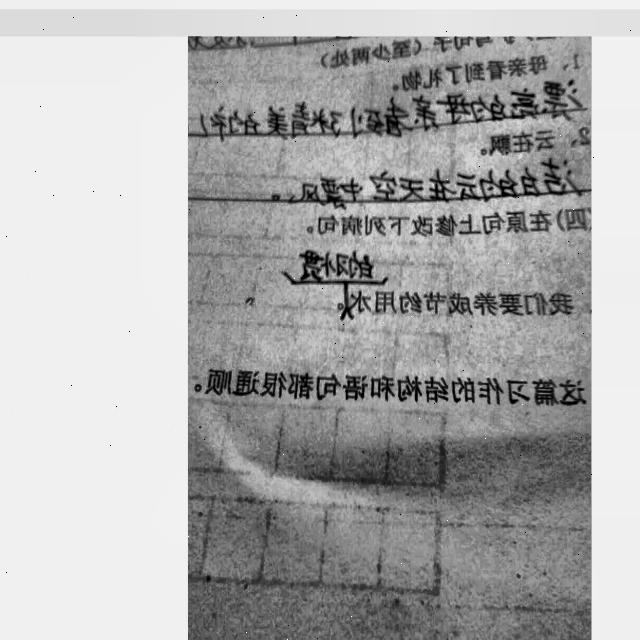 句子（至少两处）
1、母亲看到了礼物。
漂亮的母亲看到了精美的礼
2、云在飘。
洁白的云在天空中飘
四）在原句上修改下列病句。
的习惯
我们要养成节约用水。
这篇习作的结构和语句都很通顺。